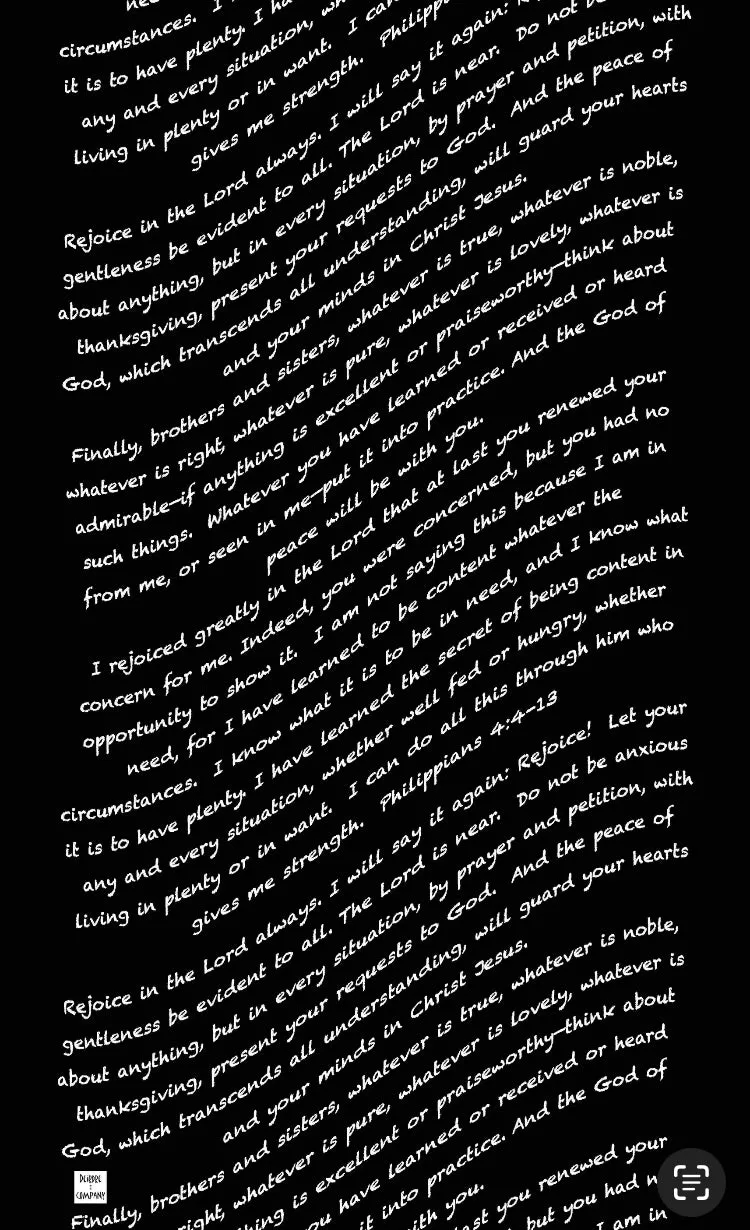 circumstances. I
it is to have plenty. I
any and every situation,
living in plenty or in want. I can
gives me strength.
Rejoice in the Lord always. I will say it again:
gentleness be evident to all. The Lord is near. Do not
about anything, but in every situation, by prayer and petition, with
thanksgiving, present your requests to God. And the peace of
God, which transcends all understanding, will guard your hearts
and your minds in Christ Jesus.
Finally, brothers and sisters, whatever is true, whatever is noble,
whatever is right, whatever is pure, whatever is lovely, whatever is
admirable—if anything is excellent or praiseworthy—think about
such things. Whatever you have learned or received or heard
from me, or seen in me—put it into practice. And the God of
peace will be with you.
I rejoiced greatly in the Lord that at last you renewed your
concern for me. Indeed, you were concerned, but you had no
opportunity to show it. I am not saying this because I am in
need, for I have learned to be content whatever the
circumstances. I know what it is to be in need, and I know what
it is to have plenty. I have learned the secret of being content in
any and every situation, whether well fed or hungry, whether
living in plenty or in want. I can do all this through him who
gives me strength. Philippians 4:4-13
Rejoice in the Lord always. I will say it again: Rejoice! Let your
gentleness be evident to all. The Lord is near. Do not be anxious
about anything, but in every situation, by prayer and petition, with
thanksgiving, present your requests to God. And the peace of
God, which transcends all understanding, will guard your hearts
and your minds in Christ Jesus.
Finally, brothers and sisters, whatever is true, whatever is noble,
right, whatever is pure, whatever is lovely, whatever is
is excellent or praiseworthy—think about
have learned or received or heard
it into practice. And the God of
you.
you renewed your
but you had
I am in
DEIRDRE
:
COMPANY